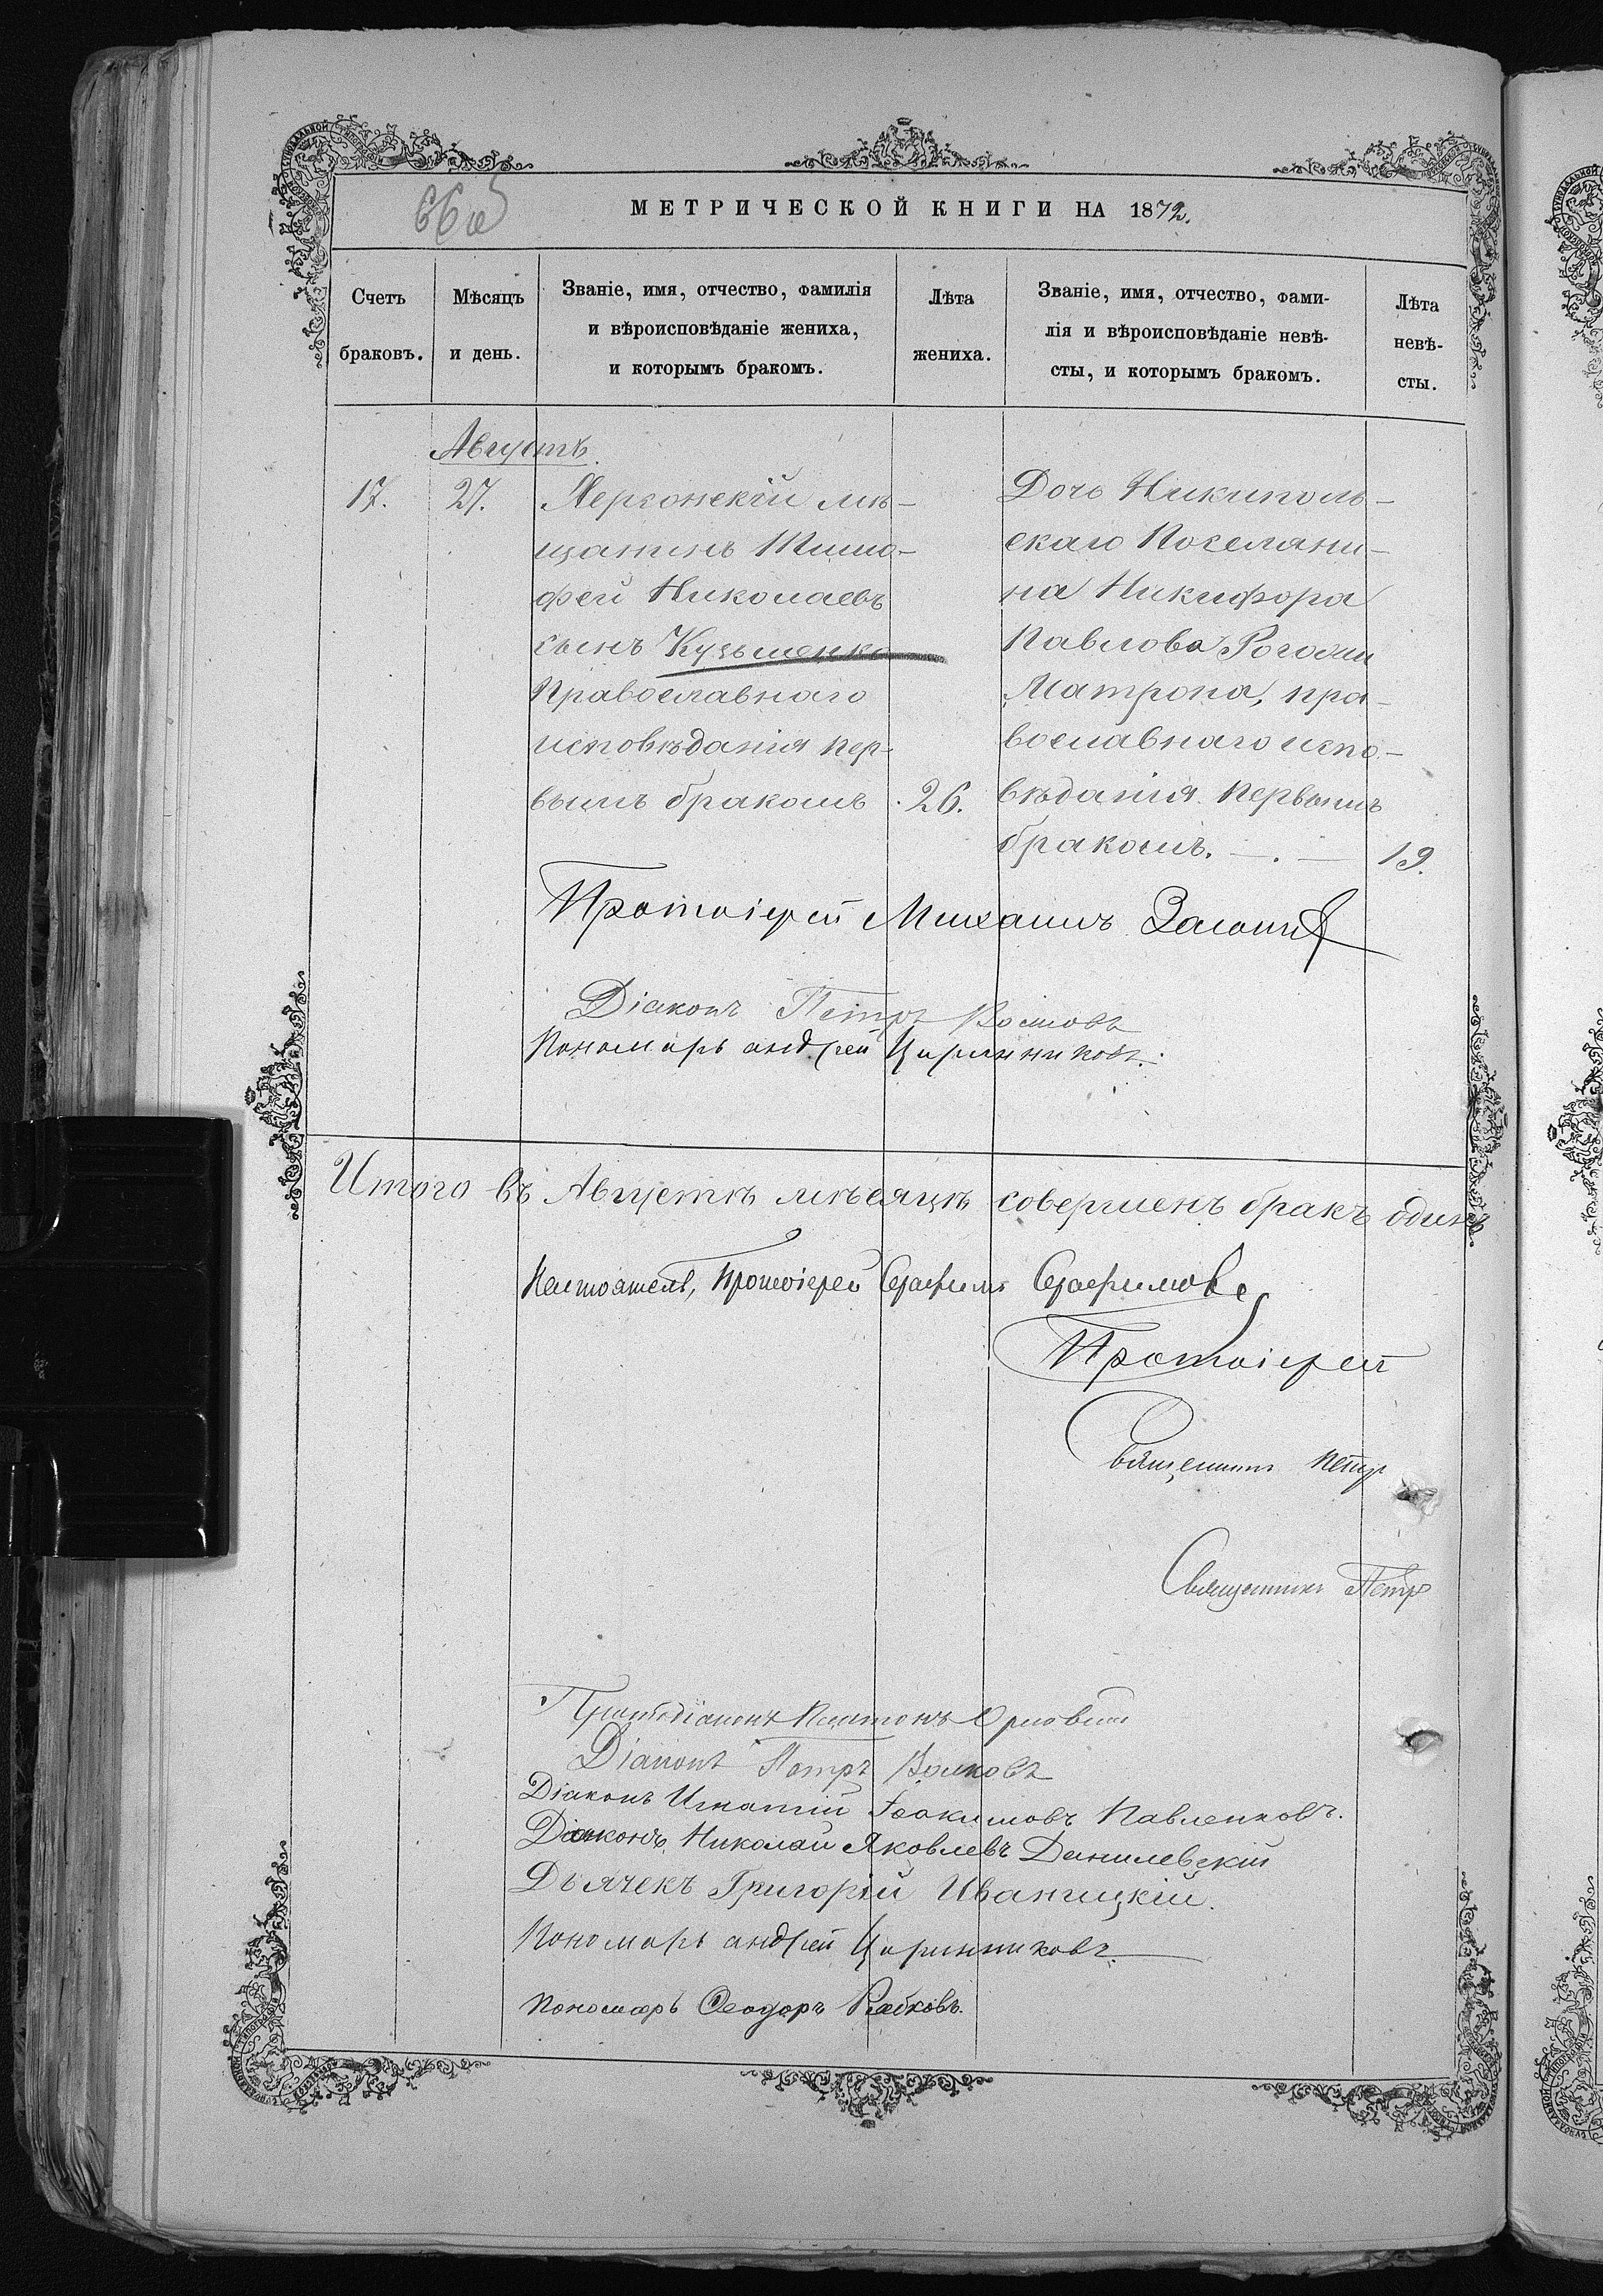 МЕТРИЧЕСКОЙ КНИГИ НА 1872.
Счетъ браковъ.
Мѣсяцъ и день.
Званіе, имя, отчество, фамилія
и вѣроисповѣданіе жениха,
и которымъ бракомъ.
Лѣта жениха.
Званіе, имя, отчество, фами-
лія и вѣроисповѣданіе невѣ-
сты, и которымъ бракомъ.
Лѣта невѣ-
сты.
Августъ.
17. 27. Херсонскій мѣ-
щанинъ Тимо-
фей Николаевъ
сынъ Кузьменко
Православнаго
исповѣданія пер-
вымъ бракомъ . 26.
Дочь Никиполь-
скаго Поселяни-
на Никифора
Павлова
Матрона, пра-
вославнаго испо-
вѣданія первымъ
бракомъ. —.— 19.
Протоіерей Михаилъ
Діаконъ Петръ Волковъ
Пономарь андрей Циринниковъ.
Итого въ Августѣ мѣсяцѣ совершенъ бракъ одинъ
Настоятель, Протоіерей Серафимъ Серафимовъ
Протоіерей
Священникъ Петръ
Священникъ Петръ
Протодіаконъ Платонъ
Діаконъ Петръ Волковъ
Діаконъ Игнатій Іоакимовъ Павленковъ.
Діаконъ Николай Яковлевъ Данилевскій
Дьячекъ Григорій Иваницкій.
Пономарь андрей Циринниковъ.
Пономарь Ѳеодоръ Рябковъ.